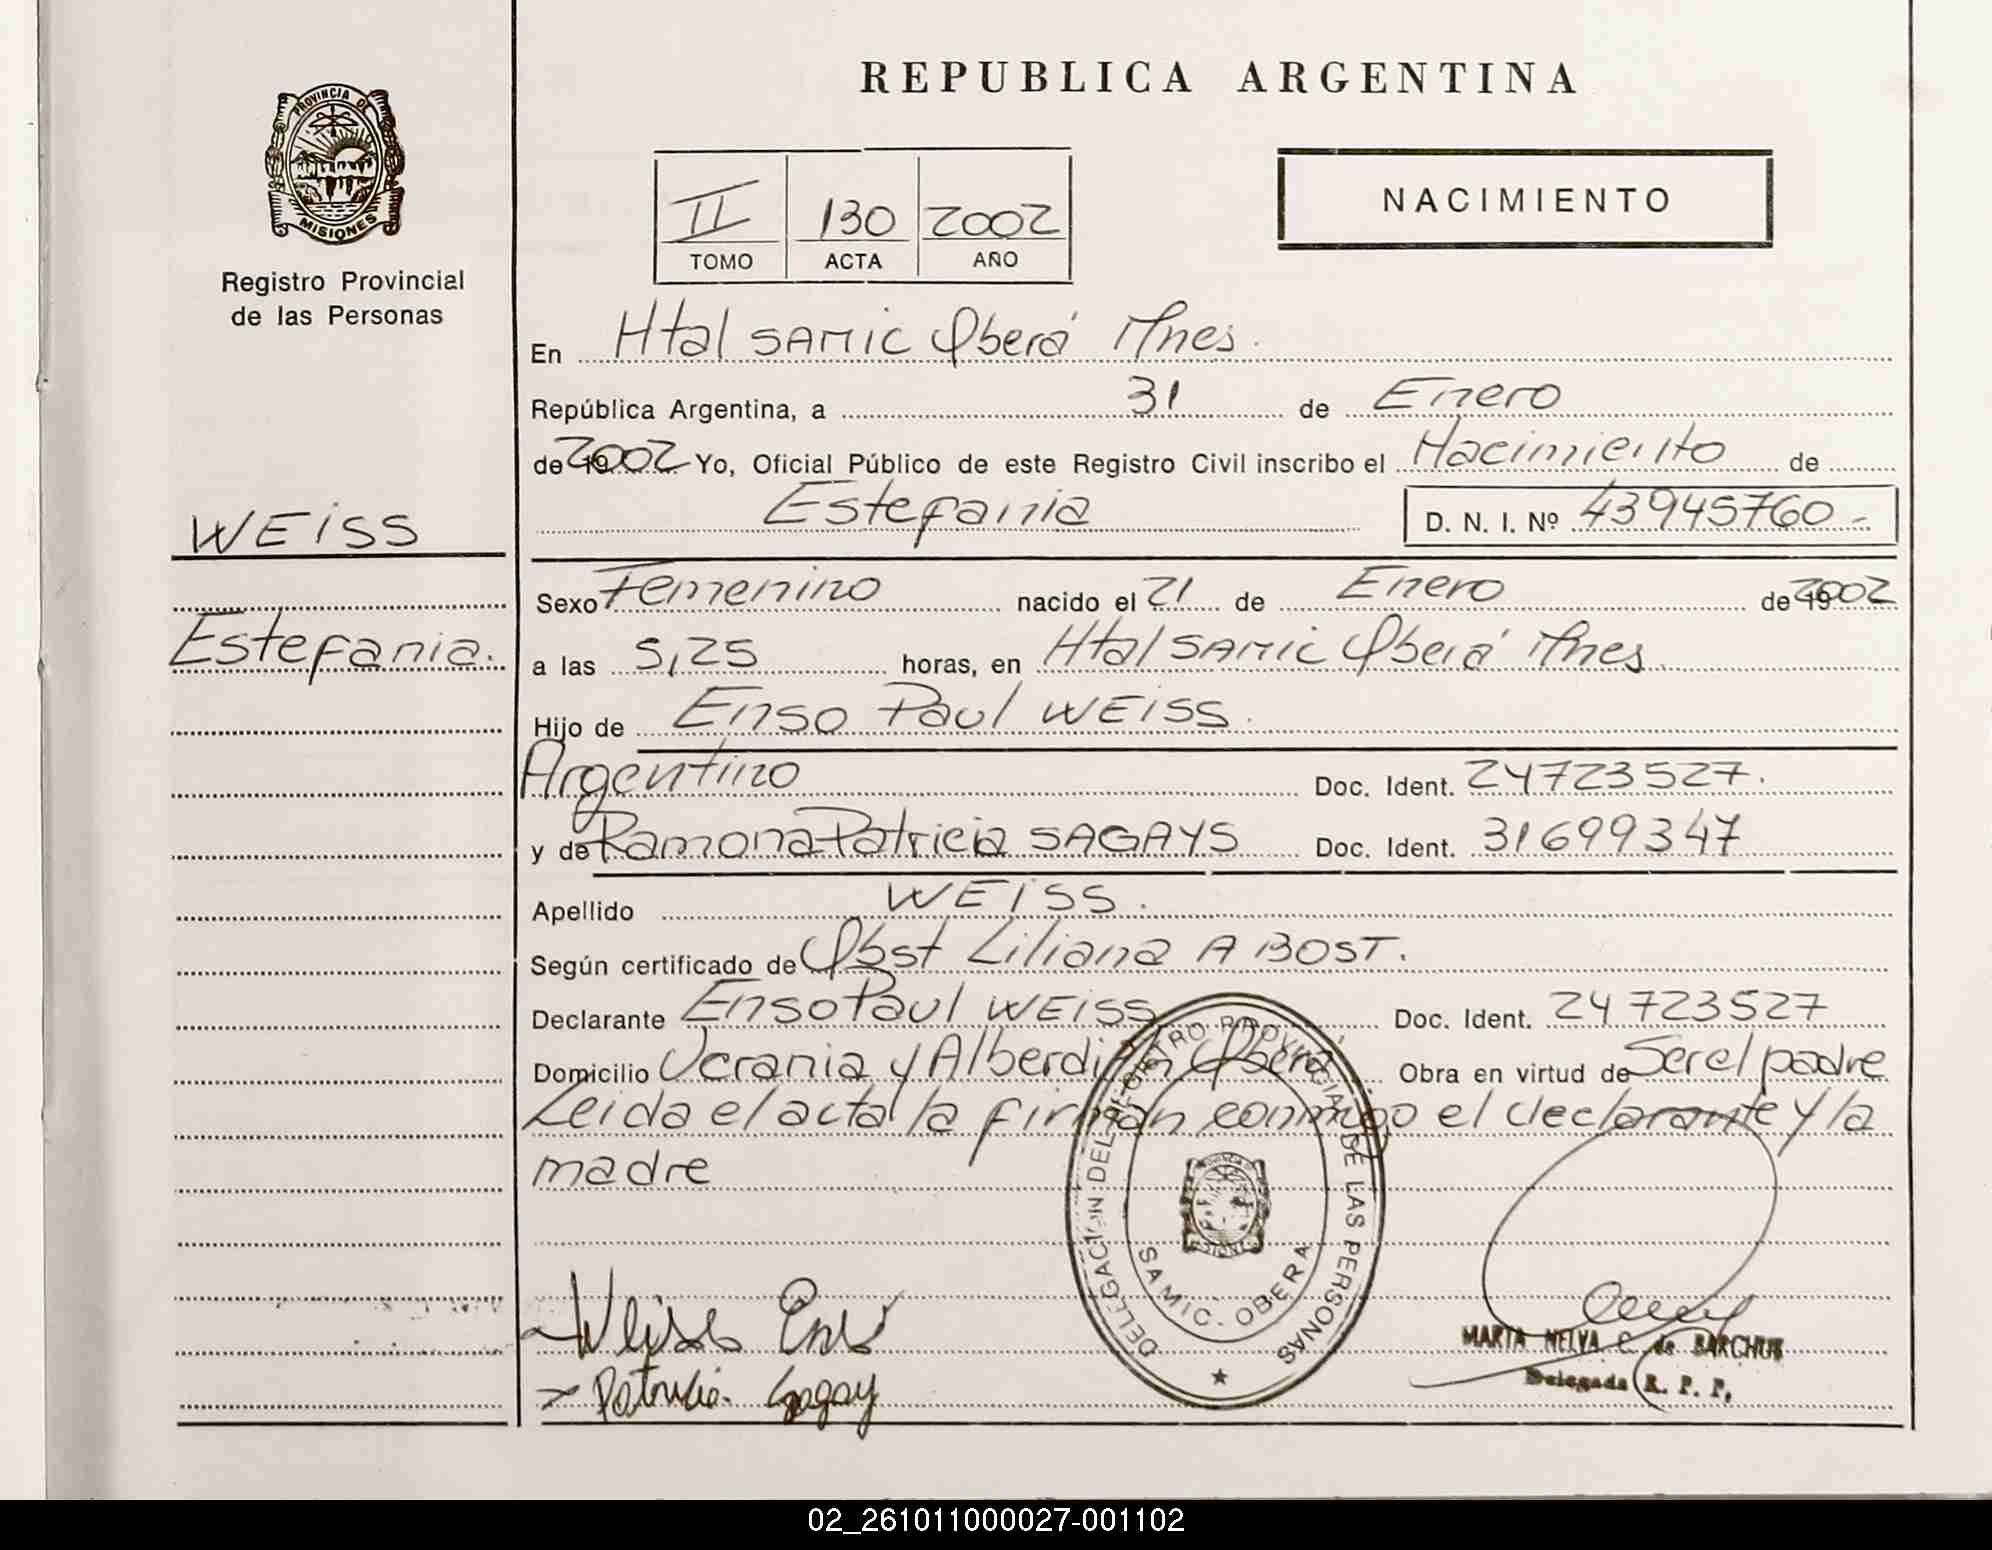 REPUBLICA ARGENTINA
PROVINCIA DE
MISIONES
Registro Provincial
de las Personas
II 130 2002
TOMO ACTA AÑO
NACIMIENTO
En Htal SAMIC Oberá Mnes.
República Argentina, a 31 de Enero
de 19 2002 Yo, Oficial Público de este Registro Civil inscribo el Nacimiento de
Estefania D. N. I. Nº 43945760-
WEISS
Estefania.
Sexo Femenino nacido el 21 de Enero de 19 2002
a las 5,25 horas, en Htal SAMIC Oberá Mnes.
Hijo de Enso Paul WEISS.
Argentino Doc. Ident. 24723527.
y de Ramona Patricia SAGAYS Doc. Ident. 31699347
Apellido WEISS.
Según certificado de Obst Liliana A BOST.
Declarante Enso Paul WEISS Doc. Ident. 24723527
Domicilio Ucrania y Alberdi Oberá Obra en virtud de Ser el padre
Leida el acta la firman conmigo el declarante y la
madre
DELEGACION DEL REGISTRO PROVINCIAL DE LAS PERSONAS
SAMIC. OBERA
Weiss Enso
Patricia Sagay
MARTA NELVA C. de BARCHUK
Delegada R. P. P.
02_261011000027-001102